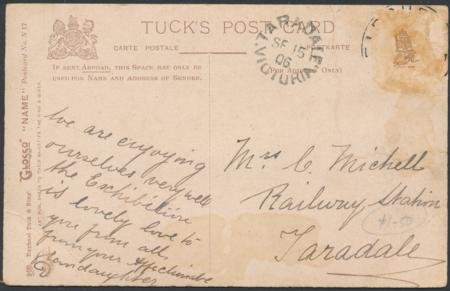 TUCK'S POST CARD
CARTE POSTALE
POSTKARTE
IF SENT ABROAD, THIS SPACE MAY ONLY BE
USED FOR NAME AND ADDRESS OF SENDER.
(FOR ADDRESS ONLY)
TARADALE
SE 15
06
VICTORIA
"GLOSSO" "NAME" Postcard
We are enjoying
ourselves very well
the Exhibition
is lovely love to
you from all
from your affectionate
Mrs C. Michell
Railway Station
Taradale